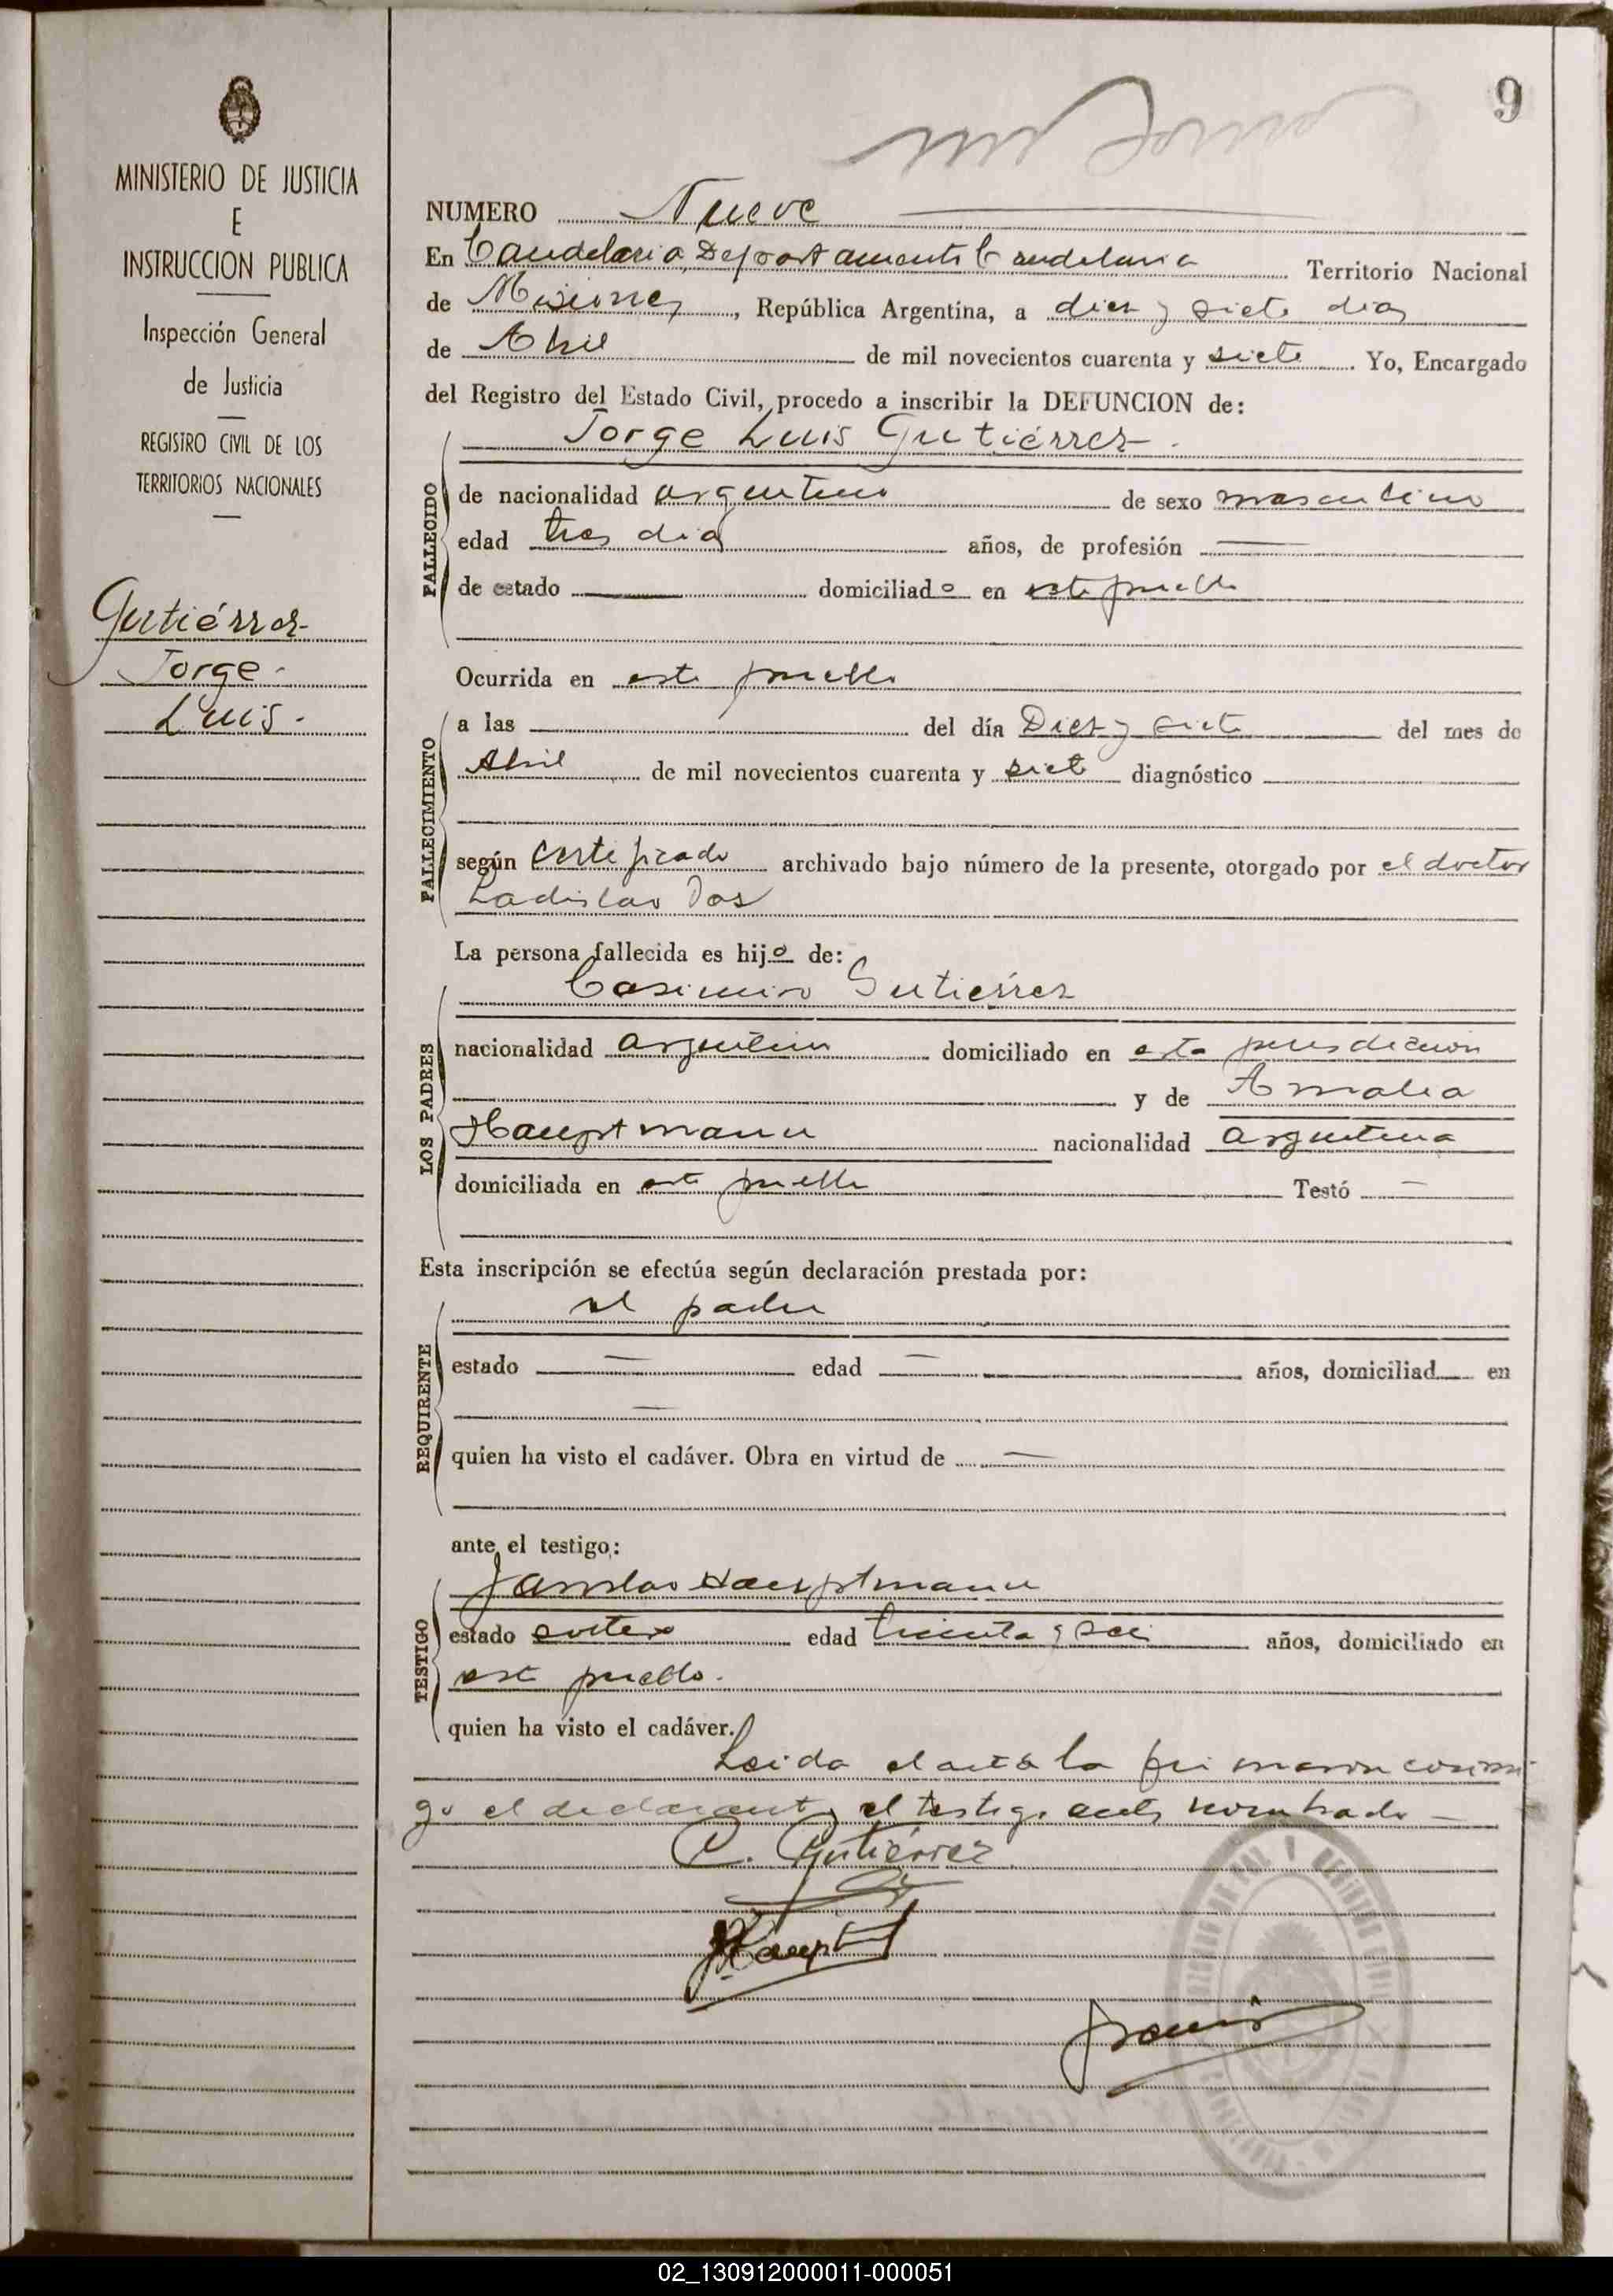 9
MINISTERIO DE JUSTICIA
E
INSTRUCCION PUBLICA
Inspección General
de Justicia
REGISTRO CIVIL DE LOS
TERRITORIOS NACIONALES
Gutiérrez
Jorge
Luis.
NUMERO Nueve
En Candelaria, Departamento Candelaria Territorio Nacional
de Misiones, República Argentina, a diez y siete dias
de Abril de mil novecientos cuarenta y siete. Yo, Encargado
del Registro del Estado Civil, procedo a inscribir la DEFUNCION de:
Jorge Luis Gutiérrez.
FALLECIDO
de nacionalidad argentino de sexo masculino
edad tres dias años, de profesión
de estado domiciliado en este pueblo
Ocurrida en este pueblo
FALLECIMIENTO
a las del día Diez y siete del mes de
Abril de mil novecientos cuarenta y siete diagnóstico
según certificado archivado bajo número de la presente, otorgado por el doctor
Ladislao
La persona fallecida es hijo de:
LOS PADRES
Casimiro Gutiérrez
nacionalidad argentino domiciliado en esta jurisdiccion
y de Amalia
Hauptmann nacionalidad argentina
domiciliada en este pueblo Testó
Esta inscripción se efectúa según declaración prestada por:
REQUIRENTE
el padre
estado edad años, domiciliad en
quien ha visto el cadáver. Obra en virtud de
ante el testigo:
TESTIGO
Hauptmann
estado soltero edad treinta y seis años, domiciliado en
este pueblo.
quien ha visto el cadáver.
Leida el acta la firmaron conmi
go el declarante y el testigo antes nombrado
C. Gutiérrez
02_130912000011-000051